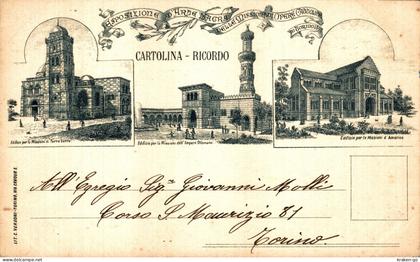 ESPOSIZIONE D'ARTE SACRA
DELLE MISSIONI E OPERE CATTOLICHE
CARTOLINA - RICORDO
Edificio per le Missioni in Terra Santa
Edificio per le Missioni dell'Impero Ottomano
Edificio per le Missioni d'America
All'Egregio Sig. Giovanni Molli
Corso S. Maurizio 81
Torino